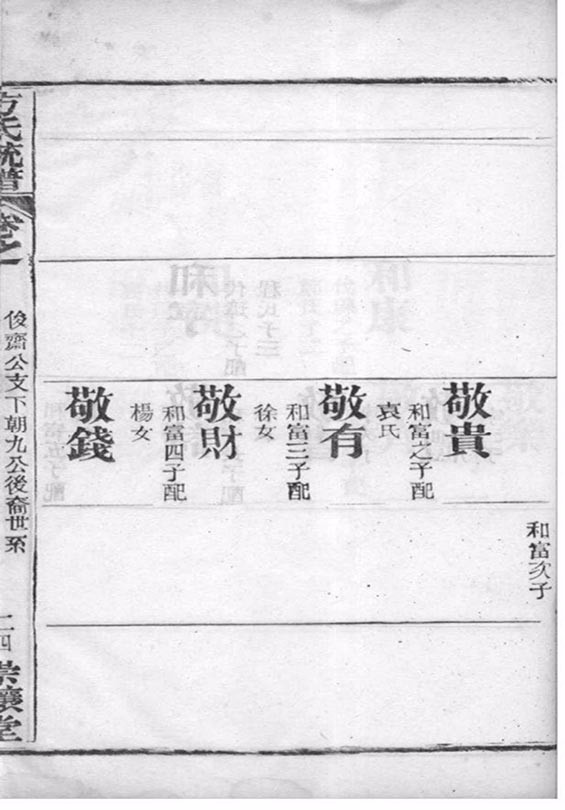 和富次子
敬貴
和富之子配
袁氏
敬有
和富三子配
徐女
敬財
和富四子配
楊女
敬錢
方氏統譜
卷之
俊齋公支下朝九公後裔世系
二四
崇讓堂